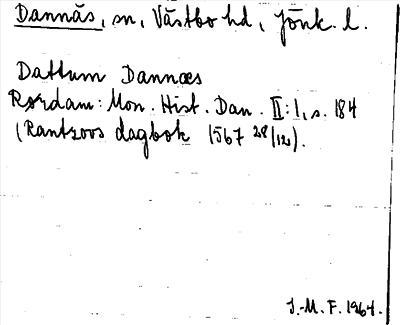 Dannäs, sn, Västbo hd, Jönk. l.
Dattum Dannæs
Rørdam: Mon. Hist. Dan. II:1, s. 184
(Rantzovs dagbok 1567 28/12).
J.-M. F. 1964.